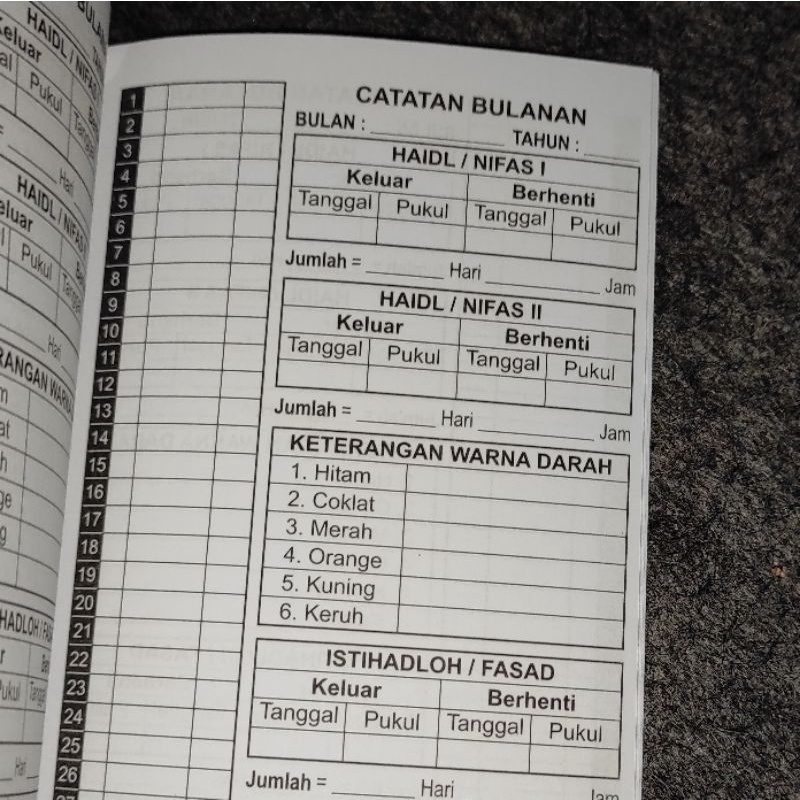 CATATAN BULANAN
BULAN : ________ TAHUN : ______
HAIDL / NIFAS I
Keluar Berhenti
Tanggal Pukul Tanggal Pukul
Jumlah = ______ Hari ________ Jam
HAIDL / NIFAS II
Keluar Berhenti
Tanggal Pukul Tanggal Pukul
Jumlah = ______ Hari ________ Jam
KETERANGAN WARNA DARAH
1. Hitam
2. Coklat
3. Merah
4. Orange
5. Kuning
6. Keruh
ISTIHADLOH / FASAD
Keluar Berhenti
Tanggal Pukul Tanggal Pukul
Jumlah = ______ Hari Jam
1
2
3
4
5
6
7
8
9
10
11
12
13
14
15
16
17
18
19
20
21
22
23
24
25
26
27
HAIDL / NIFAS
Keluar
Pukul
Hari
HAIDL / NIFAS
Pukul
Hari